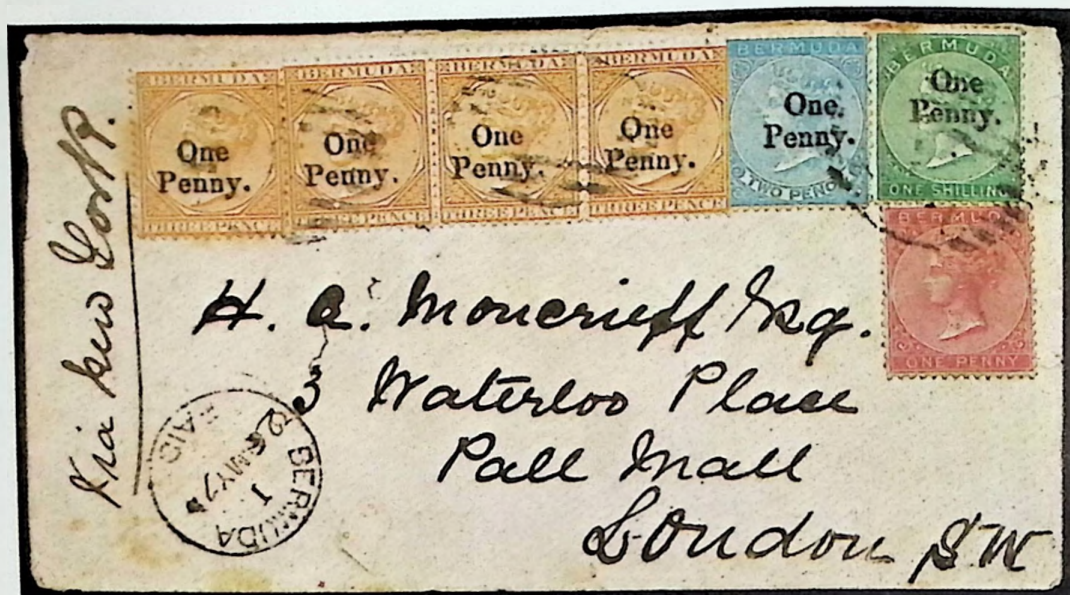 BERMUDA
One
Penny.
THREE PENCE
BERMUDA
One
Penny.
THREE PENCE
BERMUDA
One
Penny.
THREE PENCE
BERMUDA
One
Penny.
THREE PENCE
BERMUDA
One
Penny.
TWO PENCE
BERMUDA
One
Penny.
ONE SHILLING
BERMUDA
ONE PENNY
Via New York.
H. A. Moncrieff Esq.
3 Waterloo Place
Pall Mall
London S.W
BERMUDA
1
26 MY 7
PAID